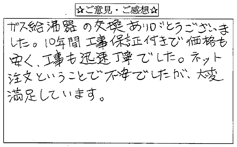 ☆ご意見・ご感想☆
ガス給湯器の交換ありがとうございま
した。10年間工事保証付きで価格も
安く、工事も迅速丁寧でした。ネット
注文ということで不安でしたが、大変
満足しています。